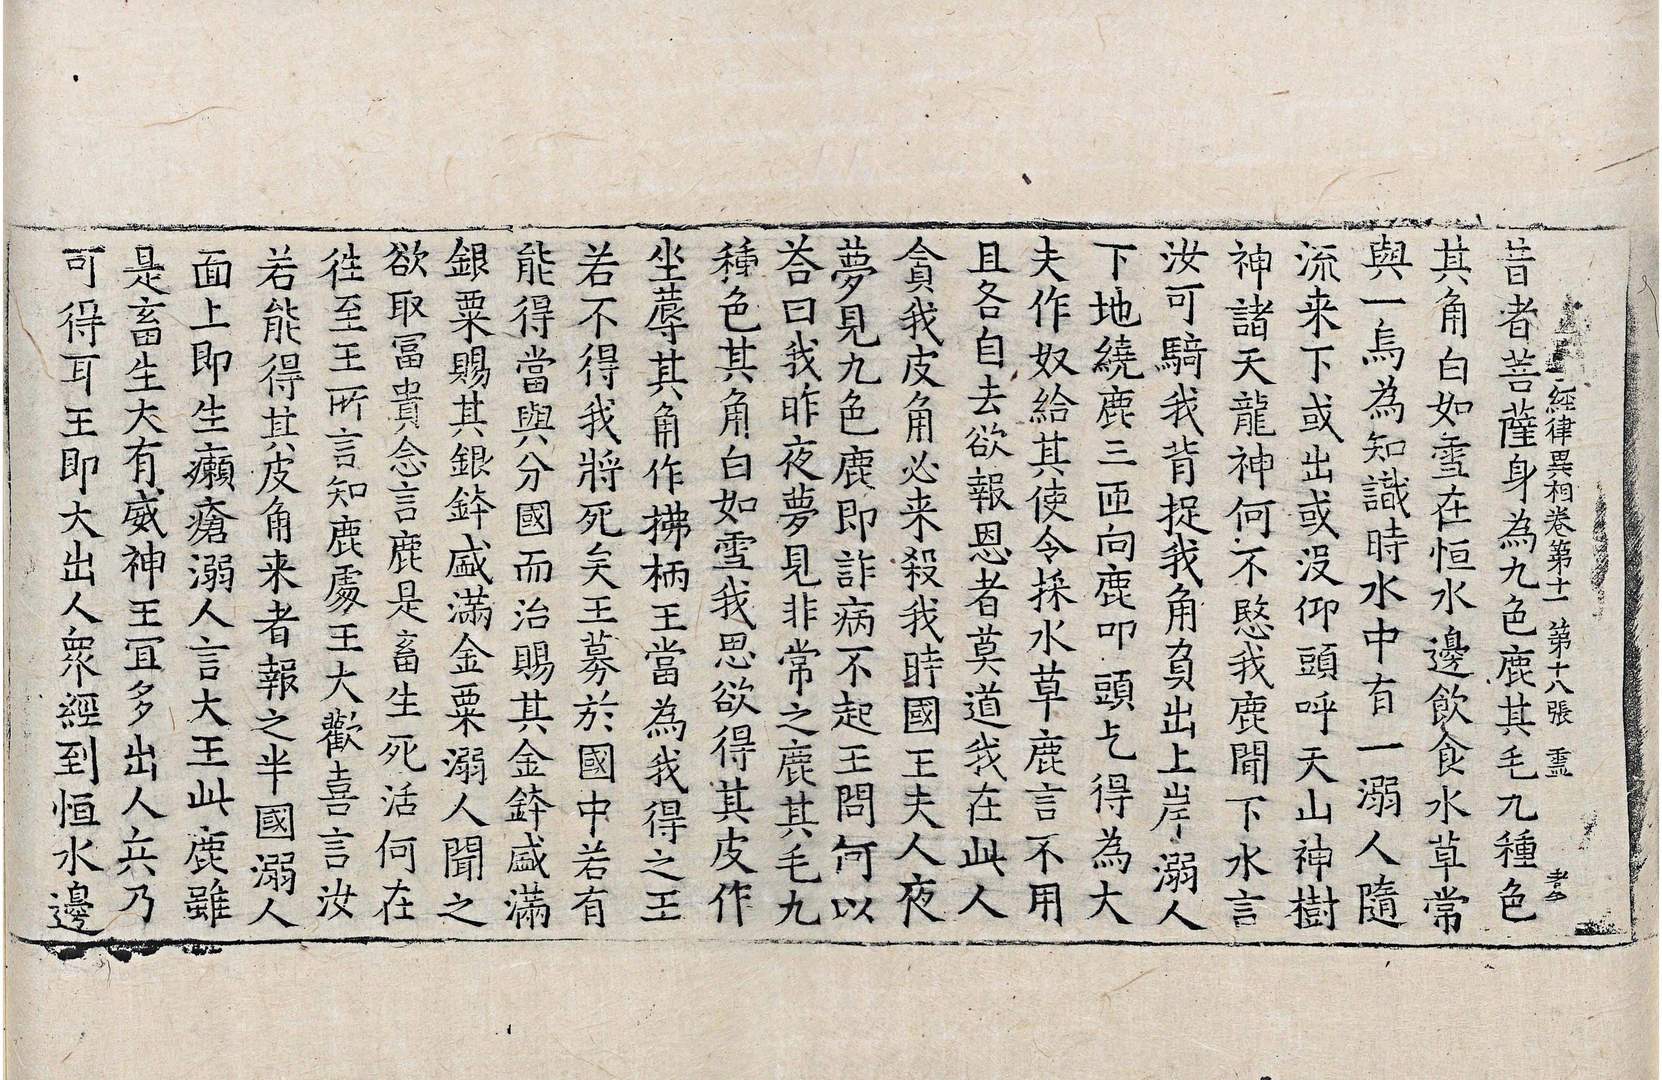 經律異相卷第十一 第十八張 靈
昔者菩薩身為九色鹿其毛九種色
其角白如雪在恒水邊飲食水草常
與一烏為知識時水中有一溺人隨
流来下或出或没仰頭呼天山神樹
神諸天龍神何不愍我鹿聞下水言
汝可騎我背捉我角負出上岸溺人
下地繞鹿三匝向鹿叩頭乞得為大
夫作奴給其使令採水草鹿言不用
且各自去欲報恩者莫道我在此人
貪我皮角必来殺我時國王夫人夜
夢見九色鹿即詐病不起王問何以
荅曰我昨夜夢見非常之鹿其毛九
種色其角白如雪我思欲得其皮作
坐蓐其角作拂柄王當為我得之王
若不得我將死矣王募於國中若有
能得當與分國而治賜其金鉢盛滿
銀粟賜其銀鉢盛滿金粟溺人聞之
欲取冨貴念言鹿是畜生死活何在
徃至王所言知鹿處王大歡喜言汝
若能得其皮角来者報之半國溺人
面上即生癩瘡溺人言大王此鹿雖
是畜生大有威神王冝多出人兵乃
可得耳王即大出人衆經到恒水邊